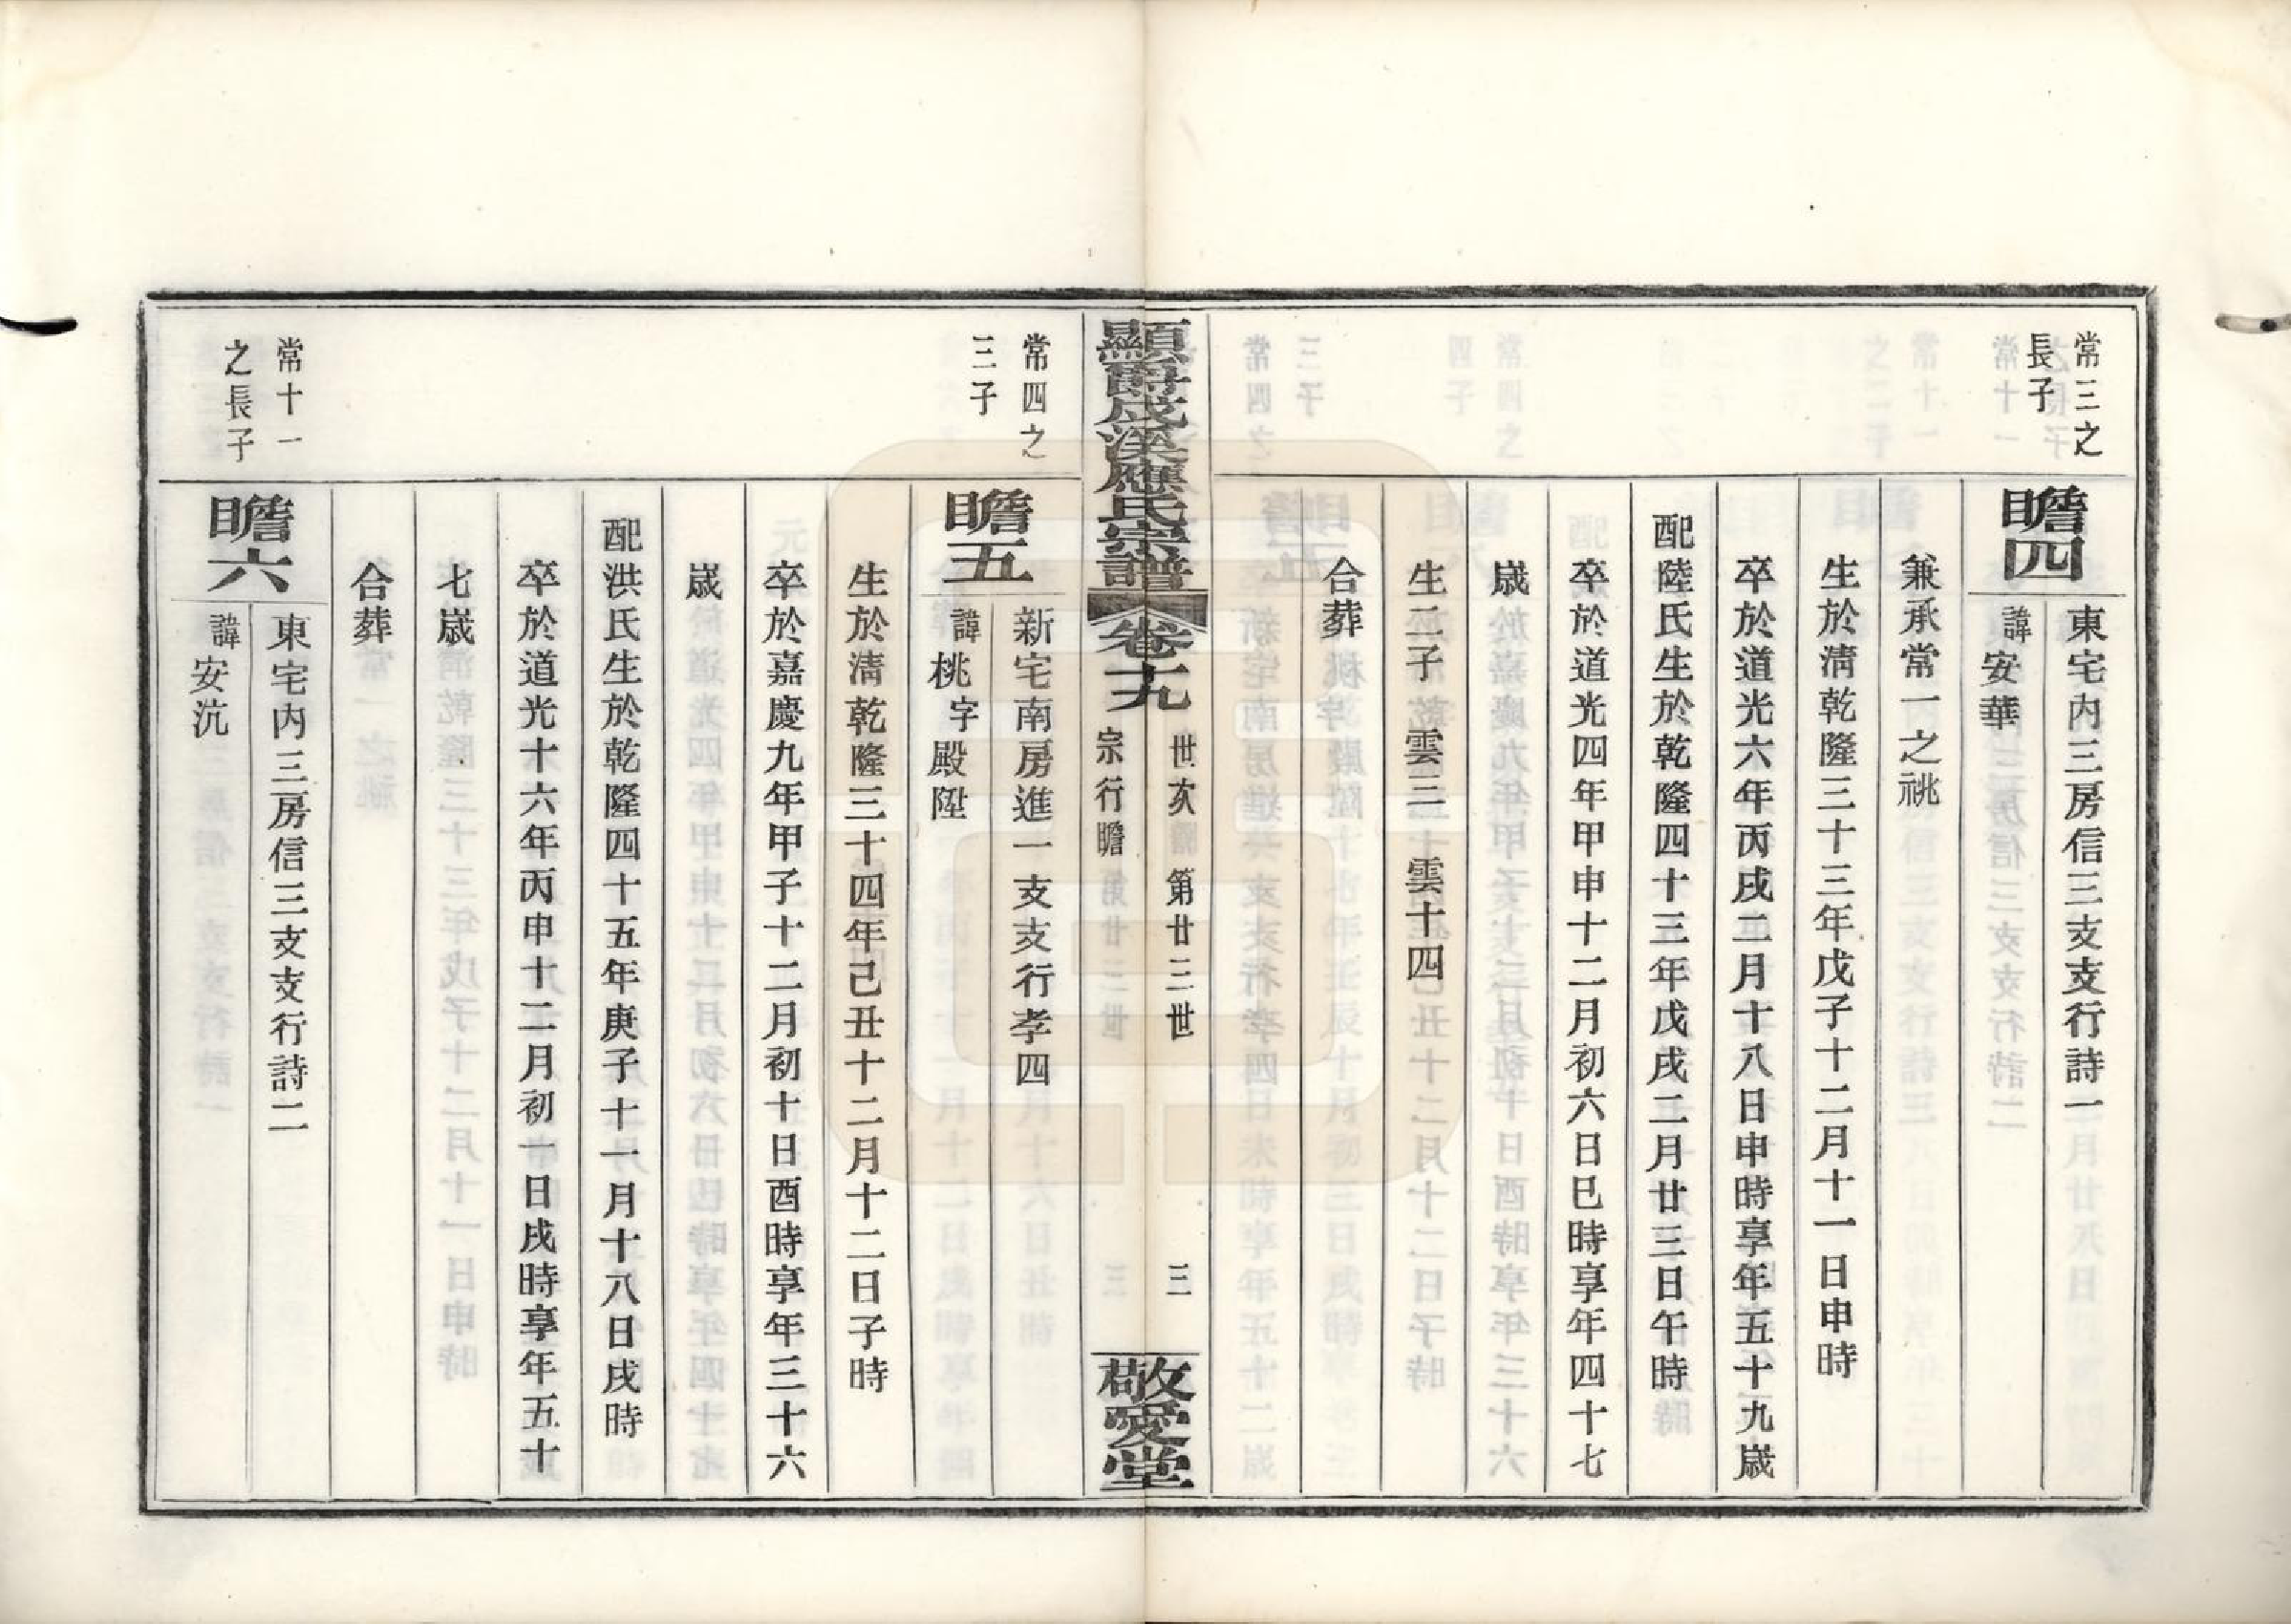 常三之
長子
瞻四
東宅内三房信三支支行詩一
諱安華
兼承常一之祧
生於清乾隆三十三年戊子十二月十一日申時
卒於道光六年丙戌二月十八日申時享年五十九歲
配陸氏生於乾隆四十三年戊戌二月廿三日午時
卒於道光四年甲申十二月初六日巳時享年四十七
歲
生二子雲三 雲十四
合葬
顯爵成溪應氏宗譜
卷十九
世次 第廿三世
宗行瞻
三
敬愛堂
常四之
三子
瞻五
新宅南房進一支支行孝四
諱桃字殿陞
生於清乾隆三十四年己丑十二月十二日子時
卒於嘉慶九年甲子十二月初十日酉時享年三十六
歲
配洪氏生於乾隆四十五年庚子十一月十八日戌時
卒於道光十六年丙申十二月初一日戌時享年五十
七歲
合葬
常十一
之長子
瞻六
東宅内三房信三支支行詩二
諱安沆